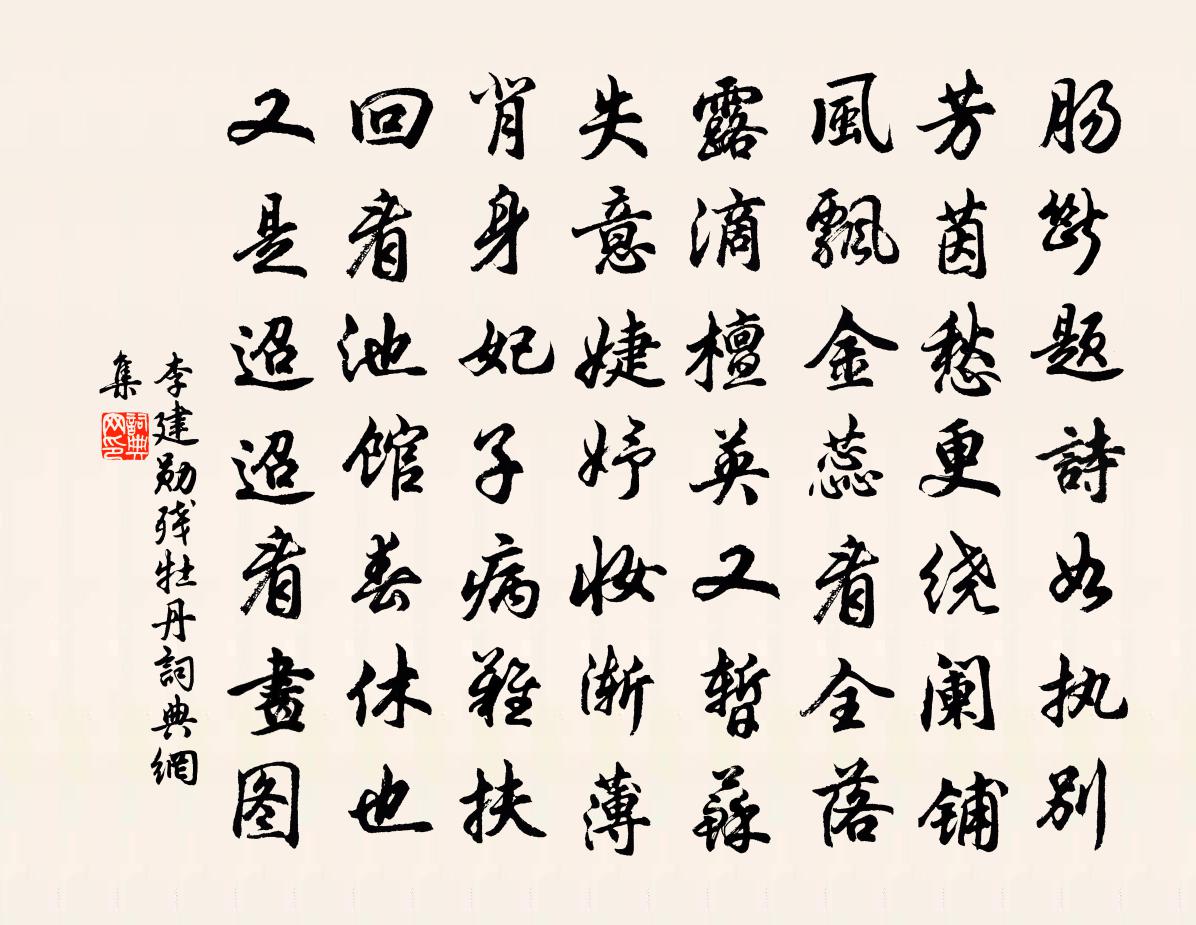 肠斷题詩如执别
芳茵愁更绕阑铺
風飄金蕊看全落
露滴檀英又暫蘇
失意婕妤妆渐薄
背身妃子病難扶
回看池館春休也
又是迢迢看畫图
李建勋残牡丹詞典網
集
詞典网印